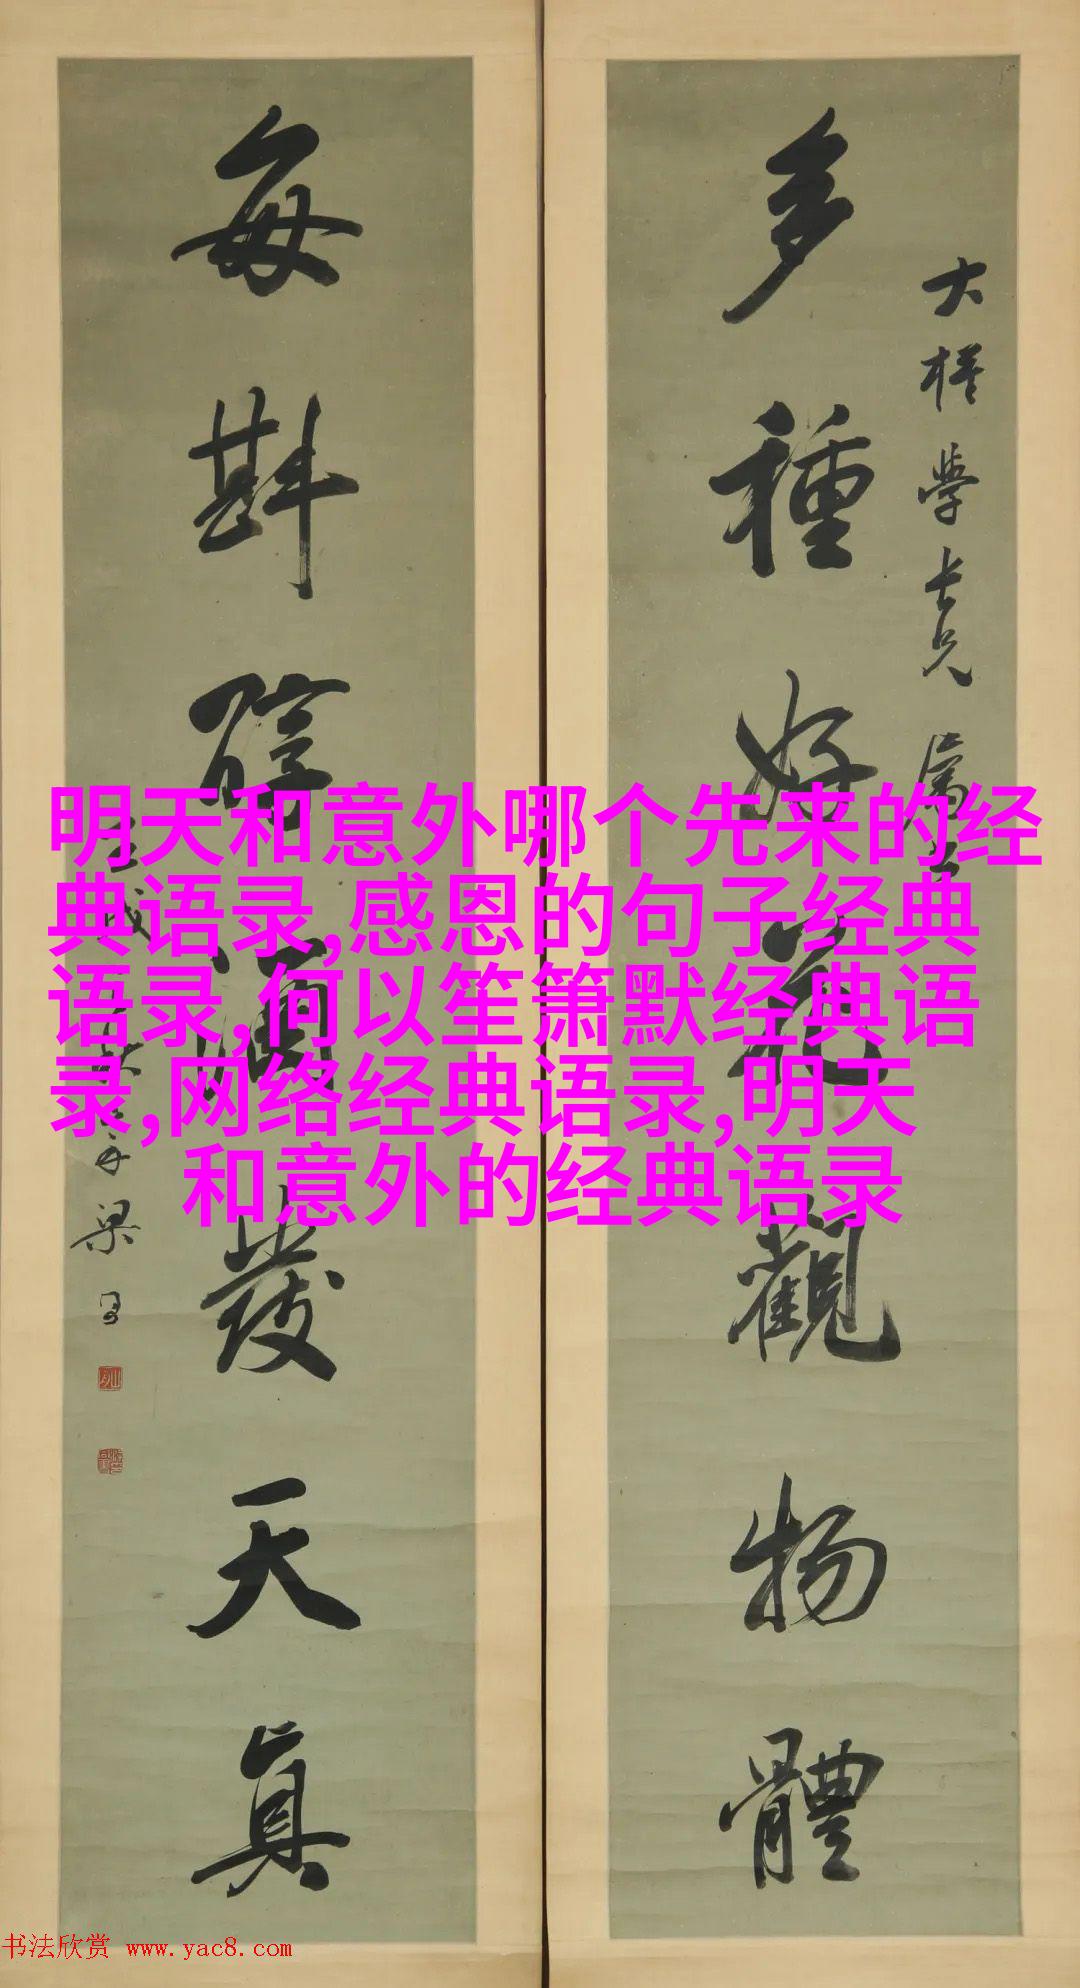 多種好花觀物體
大楳學士兄屬
每斟醇酒發天真
明天和意外哪个先来的经
典语录,感恩的句子经典
语录,何以笙箫默经典语
录,网络经典语录,明天
和意外的经典语录
书法欣赏 www.yac8.com